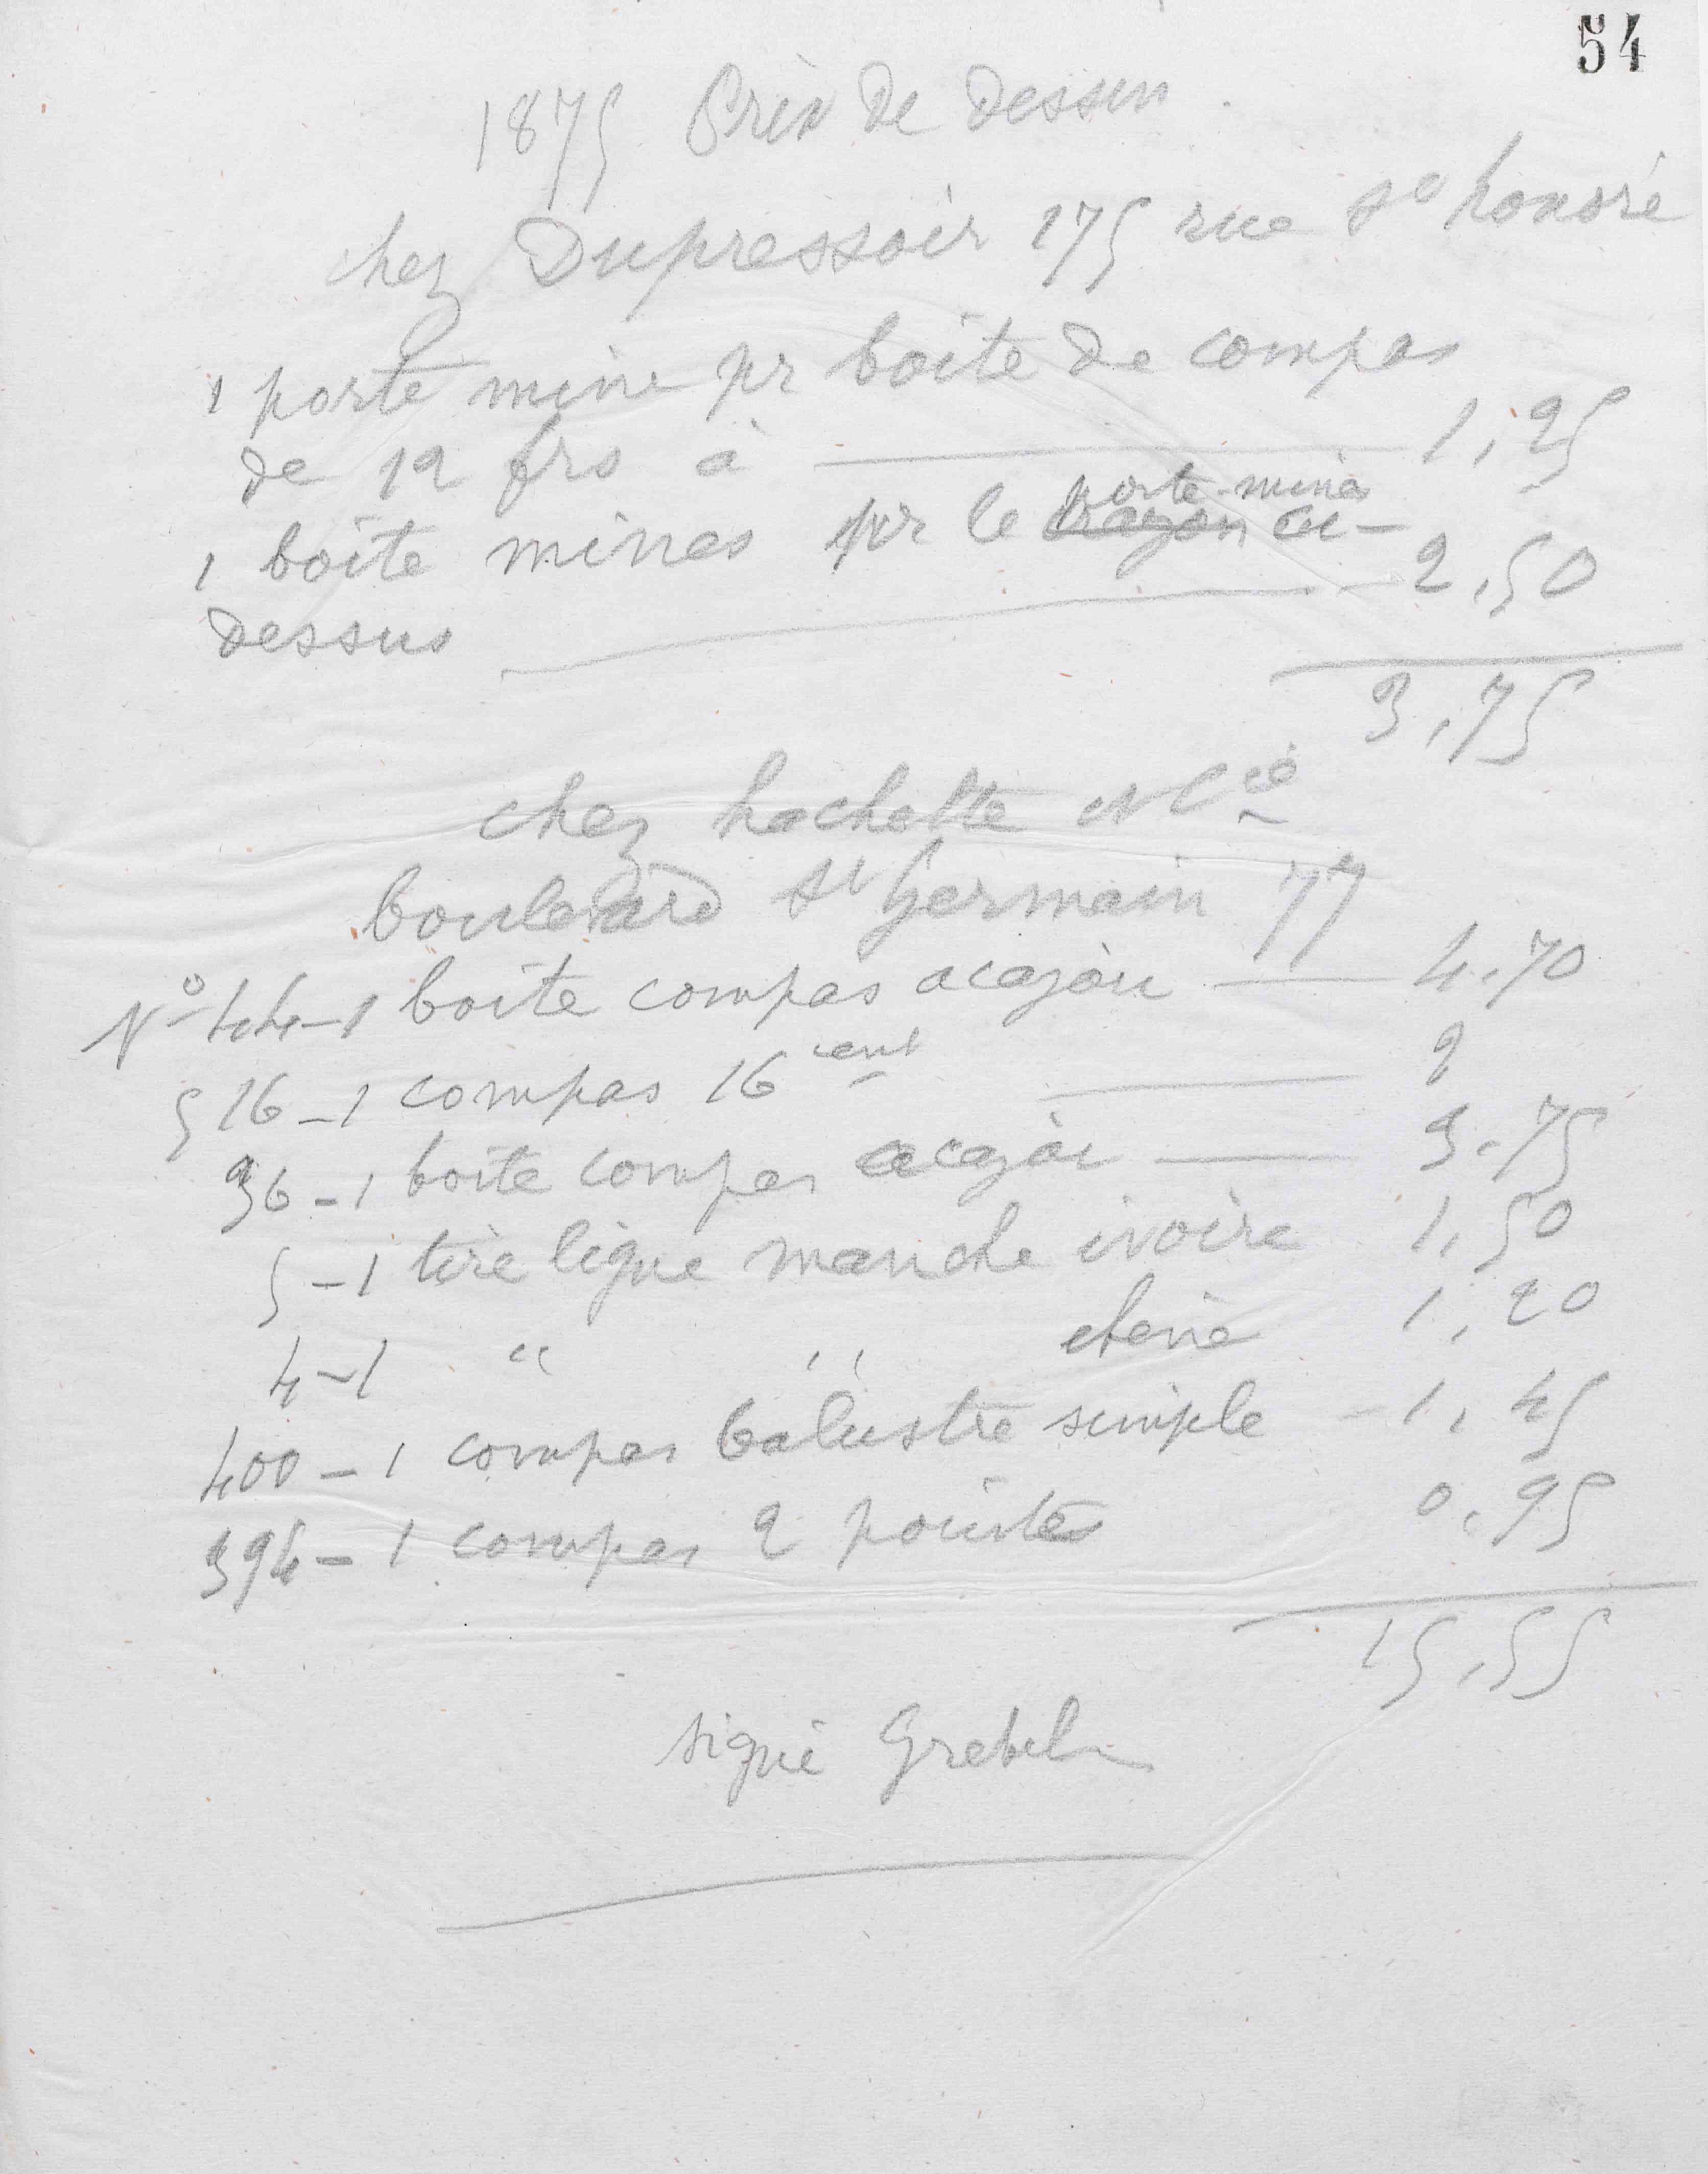 54
1875 Prix de dessin
chez Dupressoir 175 rue St honoré
1 porte mine pr boite de compas
de 12 frs à 1,25
porte-mine
1 boite mines pr le crayon ci-
dessus 2,50
3,75
chez hachette et Cie
boulevard St Germain 77
No 44-1 boite compas acajou 4.70
516-1 compas 16 cent 2
36-1 boite compas acajou 3.75
5-1 tire ligne manche ivoire 1,50
4-1 " " ebene 1,20
400-1 compas balustre simple - 1,45
394-1 compas 2 pointes 0,95
15,55
signé Grebel